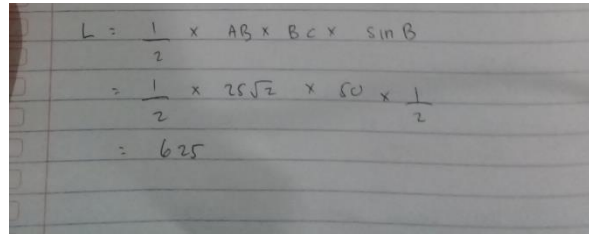 L = 1/2 × AB × BC × sin B
= 1/2 × 25√2 × 50 × 1/2
= 625